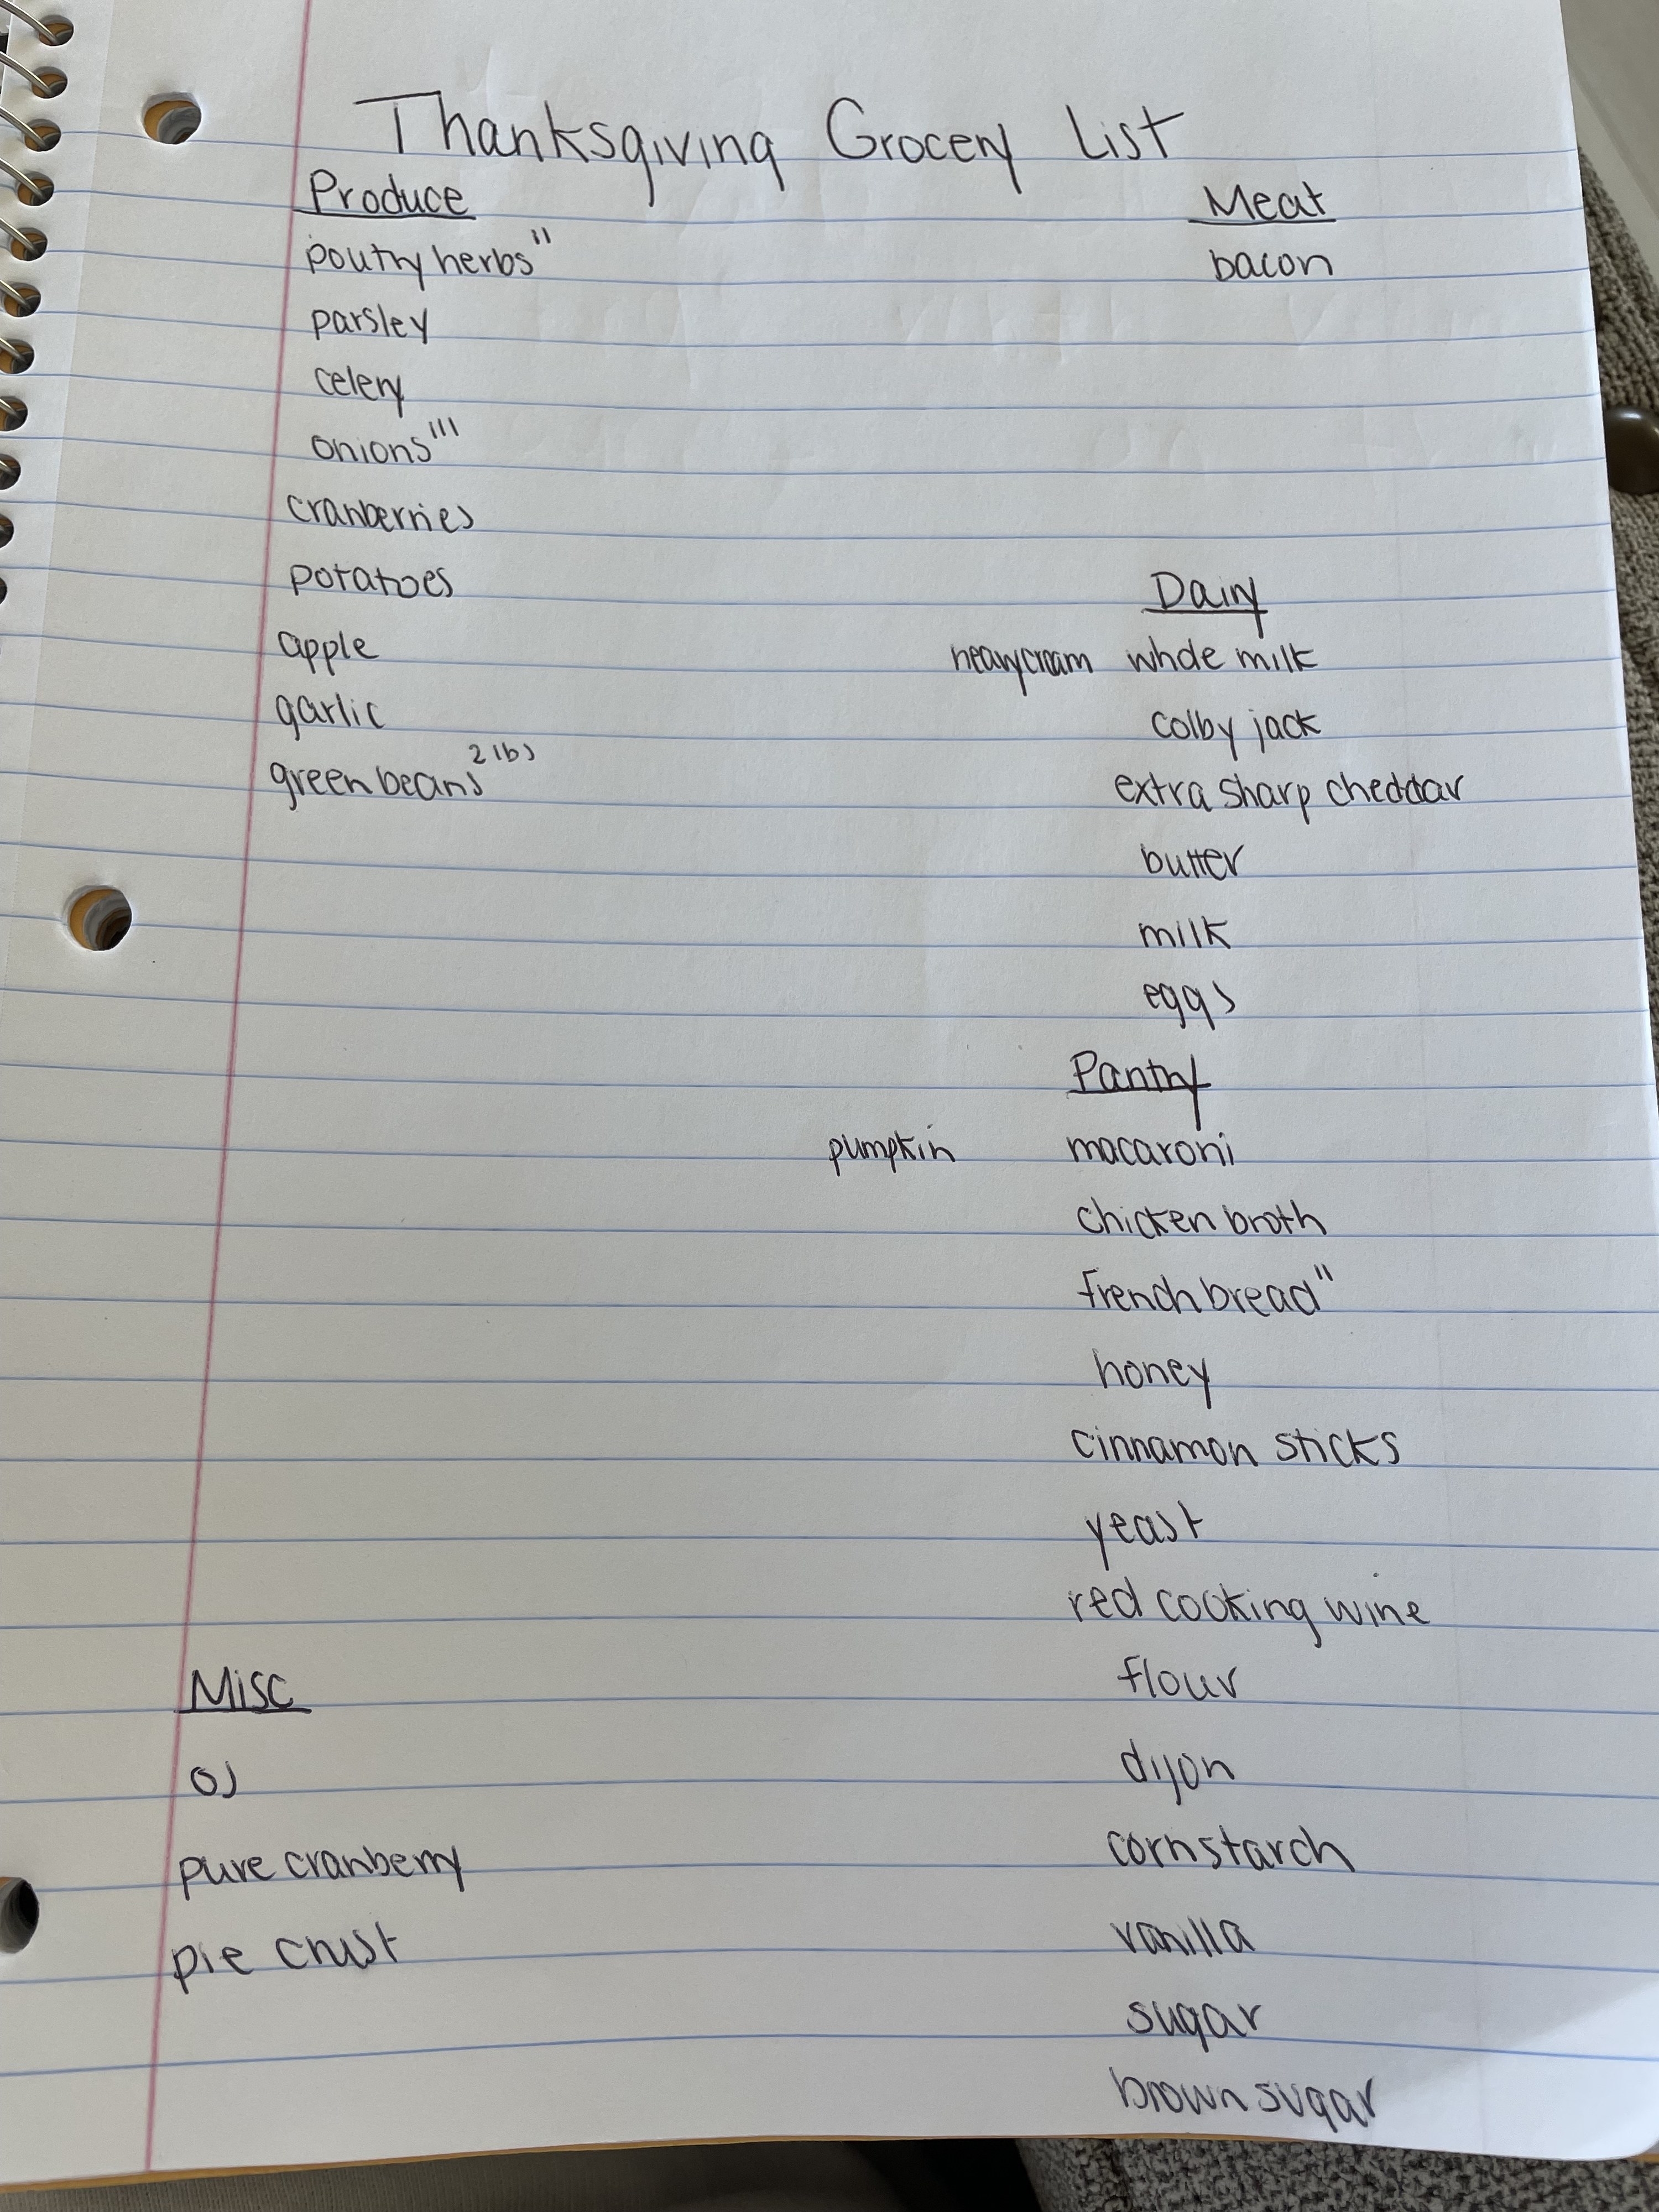 Thanksgiving Grocery List
Produce
poutry herbs "
parsley
celery
onions '''
cranberries
potatoes
apple
garlic
green beans 2 lbs
Meat
bacon
Dairy
heavy cream whole milk
colby jack
extra sharp cheddar
butter
milk
eggs
Pantry
pumpkin macaroni
chicken broth
french bread "
honey
cinnamon sticks
yeast
red cooking wine
flour
dijon
cornstarch
vanilla
sugar
brown sugar
Misc
OJ
pure cranberry
pie crust